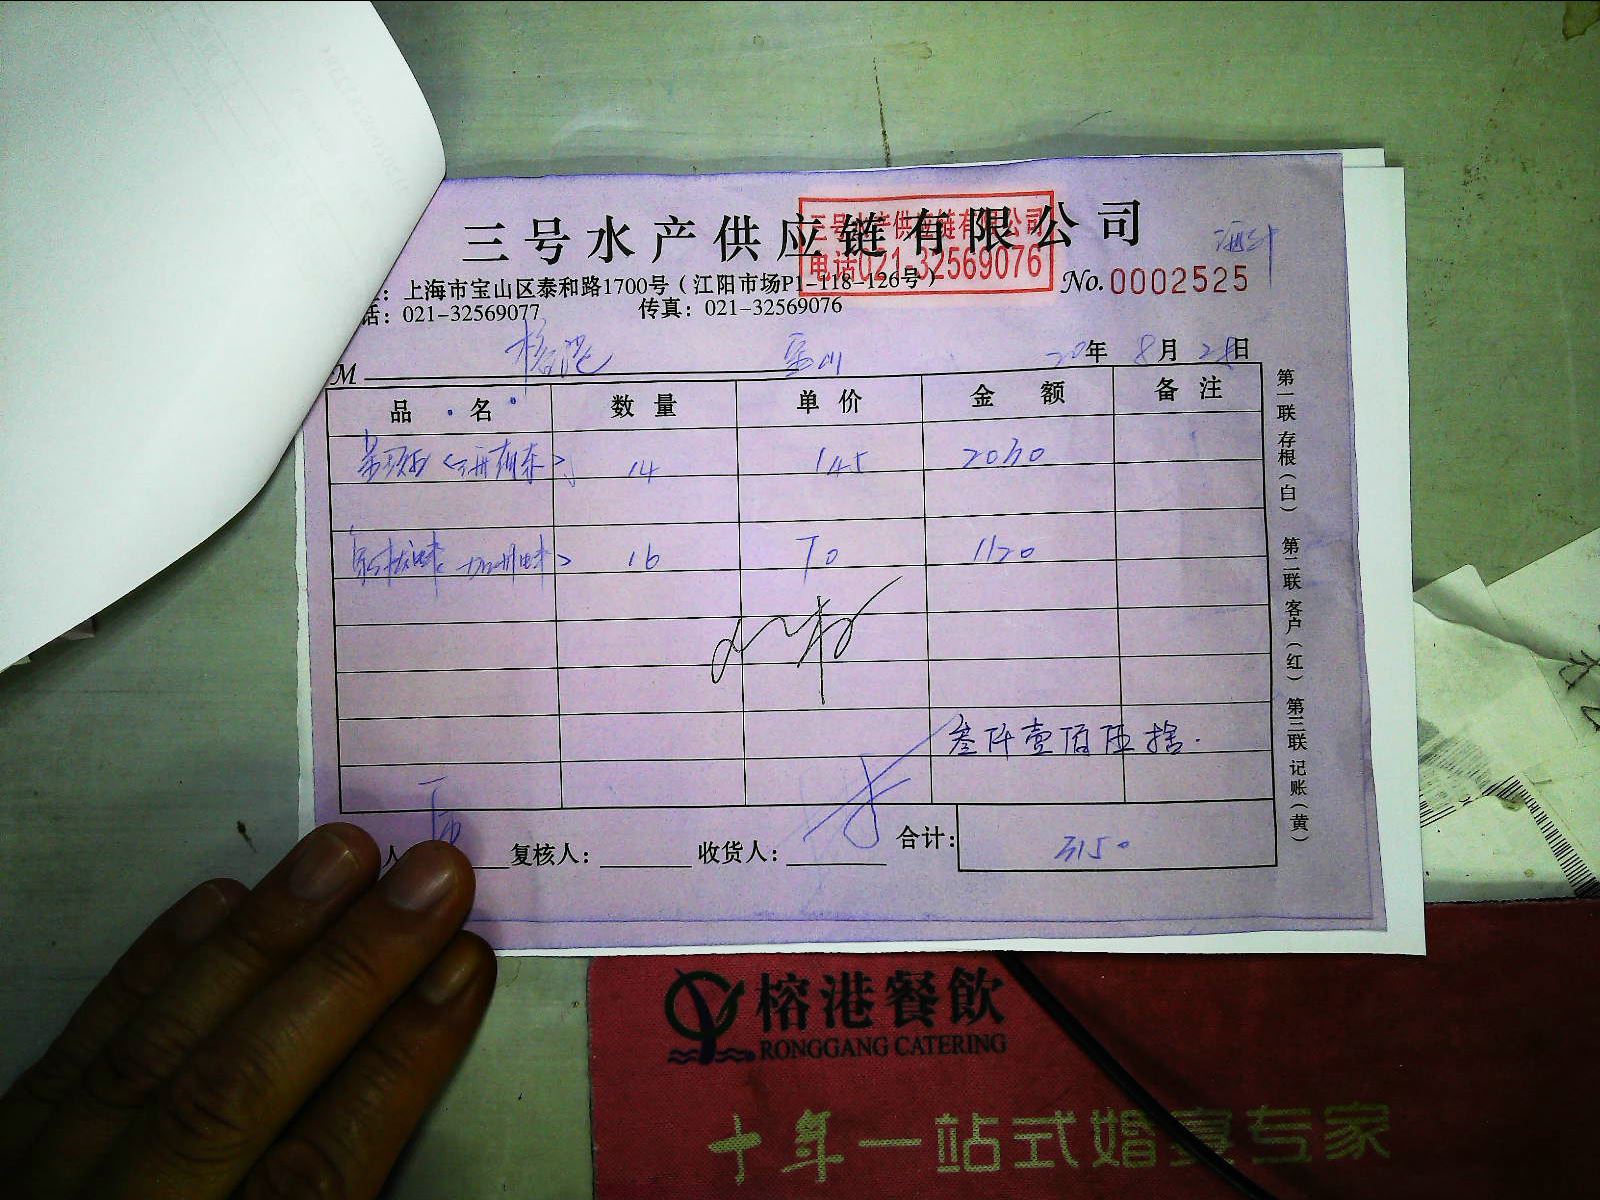 三号水产供应链有限公司
三号水产供应链有限公司
电话021-32569076
：上海市宝山区泰和路1700号（江阳市场P1-118-126号）
No.0002525
话：021-32569077 传真：021-32569076
榕港 宝山 20年 8月 日
M
品名 数量 单价 金额 备注
14 145 2030
16 70 1120
叁仟壹佰伍拾.
人 复核人： 收货人： 合计： 3150
第一联 存根（白） 第二联 客户（红） 第三联 记账（黄）
榕港餐飲
RONGGANG CATERING
十年一站式婚宴专家